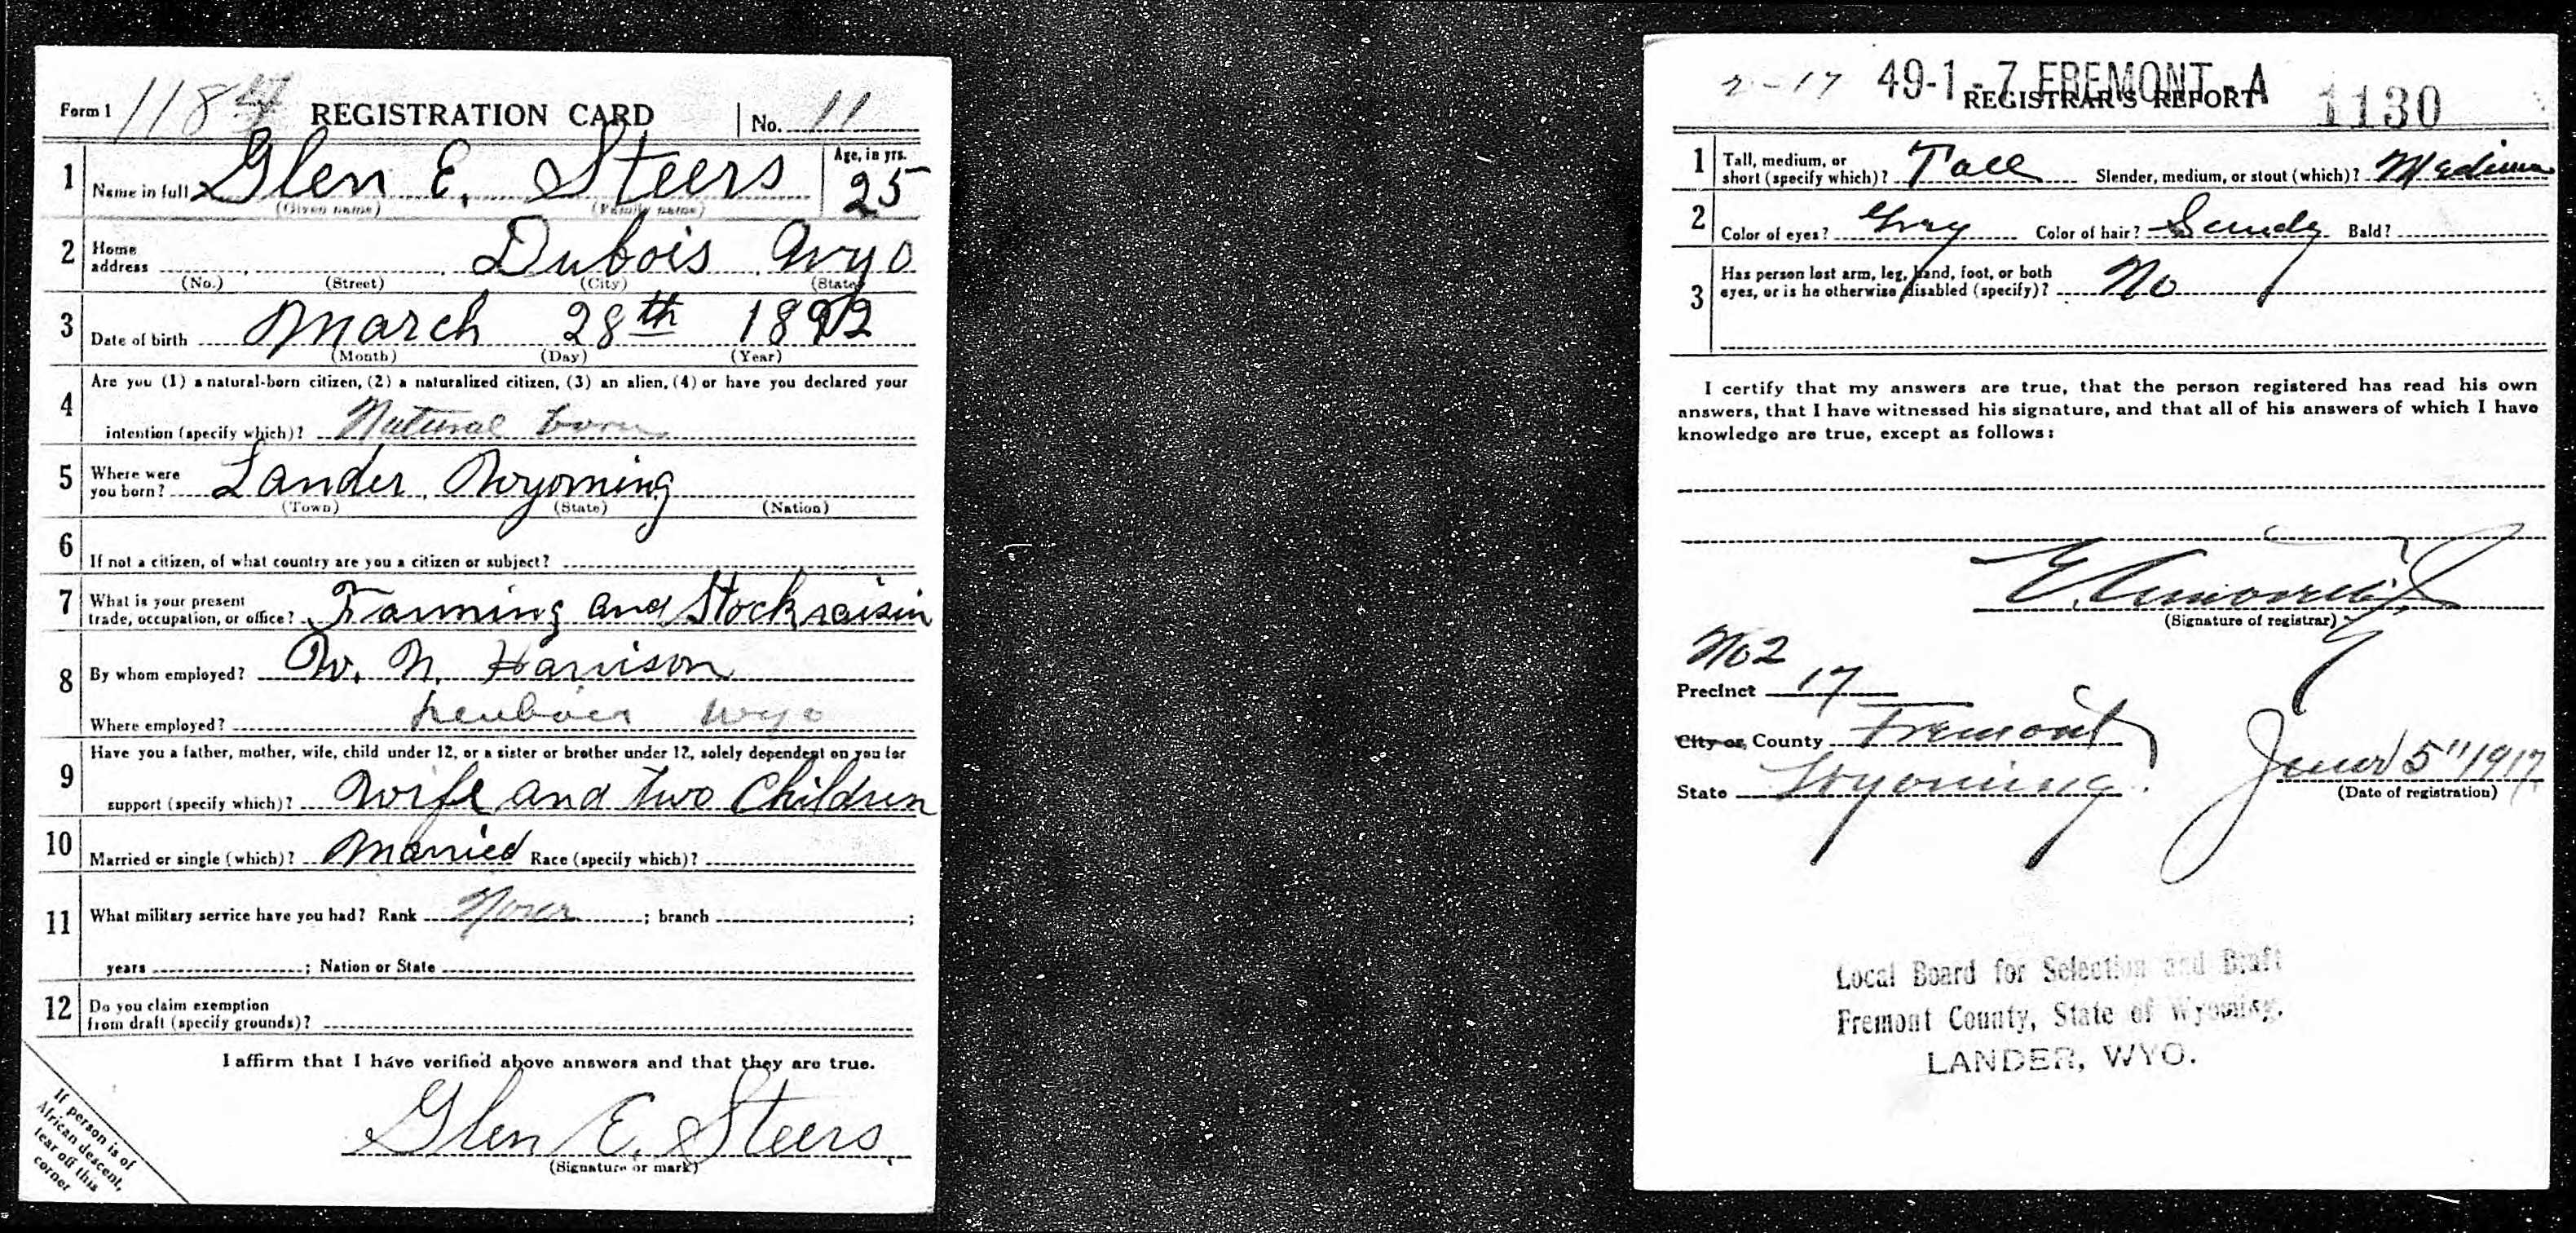 Form 1 1184 REGISTRATION CARD No. 11
1 Name in full Glen E. Steers Age, in yrs. 25
(Given name) (Family name)
2 Home address Dubois Wyo
(No.) (Street) (City) (State)
3 Date of birth March 28th 1892
(Month) (Day) (Year)
4 Are you (1) a natural-born citizen, (2) a naturalized citizen, (3) an alien, (4) or have you declared your
intention (specify which)? Natural born
5 Where were you born? Lander, Wyoming
(Town) (State) (Nation)
6 If not a citizen, of what country are you a citizen or subject?
7 What is your present trade, occupation, or office? Farming and Stockraisin
8 By whom employed? W. N. Harrison
Where employed? Wyo
9 Have you a father, mother, wife, child under 12, or a sister or brother under 12, solely dependent on you for
support (specify which)? Wife and two Children
10 Married or single (which)? Married Race (specify which)?
11 What military service have you had? Rank None ; branch ;
years ; Nation or State
12 Do you claim exemption
from draft (specify grounds)?
I affirm that I have verified above answers and that they are true.
Glen E. Steers
(Signature or mark)
If person is of
African descent,
tear off this
corner
2-17 49-1-7 FREMONT-A
REGISTRAR'S REPORT 1130
1 Tall, medium, or short (specify which)? Tall Slender, medium, or stout (which)? Medium
2 Color of eyes? Gray Color of hair? Sandy Bald?
3 Has person lost arm, leg, hand, foot, or both
eyes, or is he otherwise disabled (specify)? No
I certify that my answers are true, that the person registered has read his own
answers, that I have witnessed his signature, and that all of his answers of which I have
knowledge are true, except as follows:
(Signature of registrar)
No 2
Precinct 17
City or County Fremont
State Wyoming. June 5" 1917
(Date of registration)
Local Board for Selection and Draft
Fremont County, State of Wyoming,
LANDER, WYO.